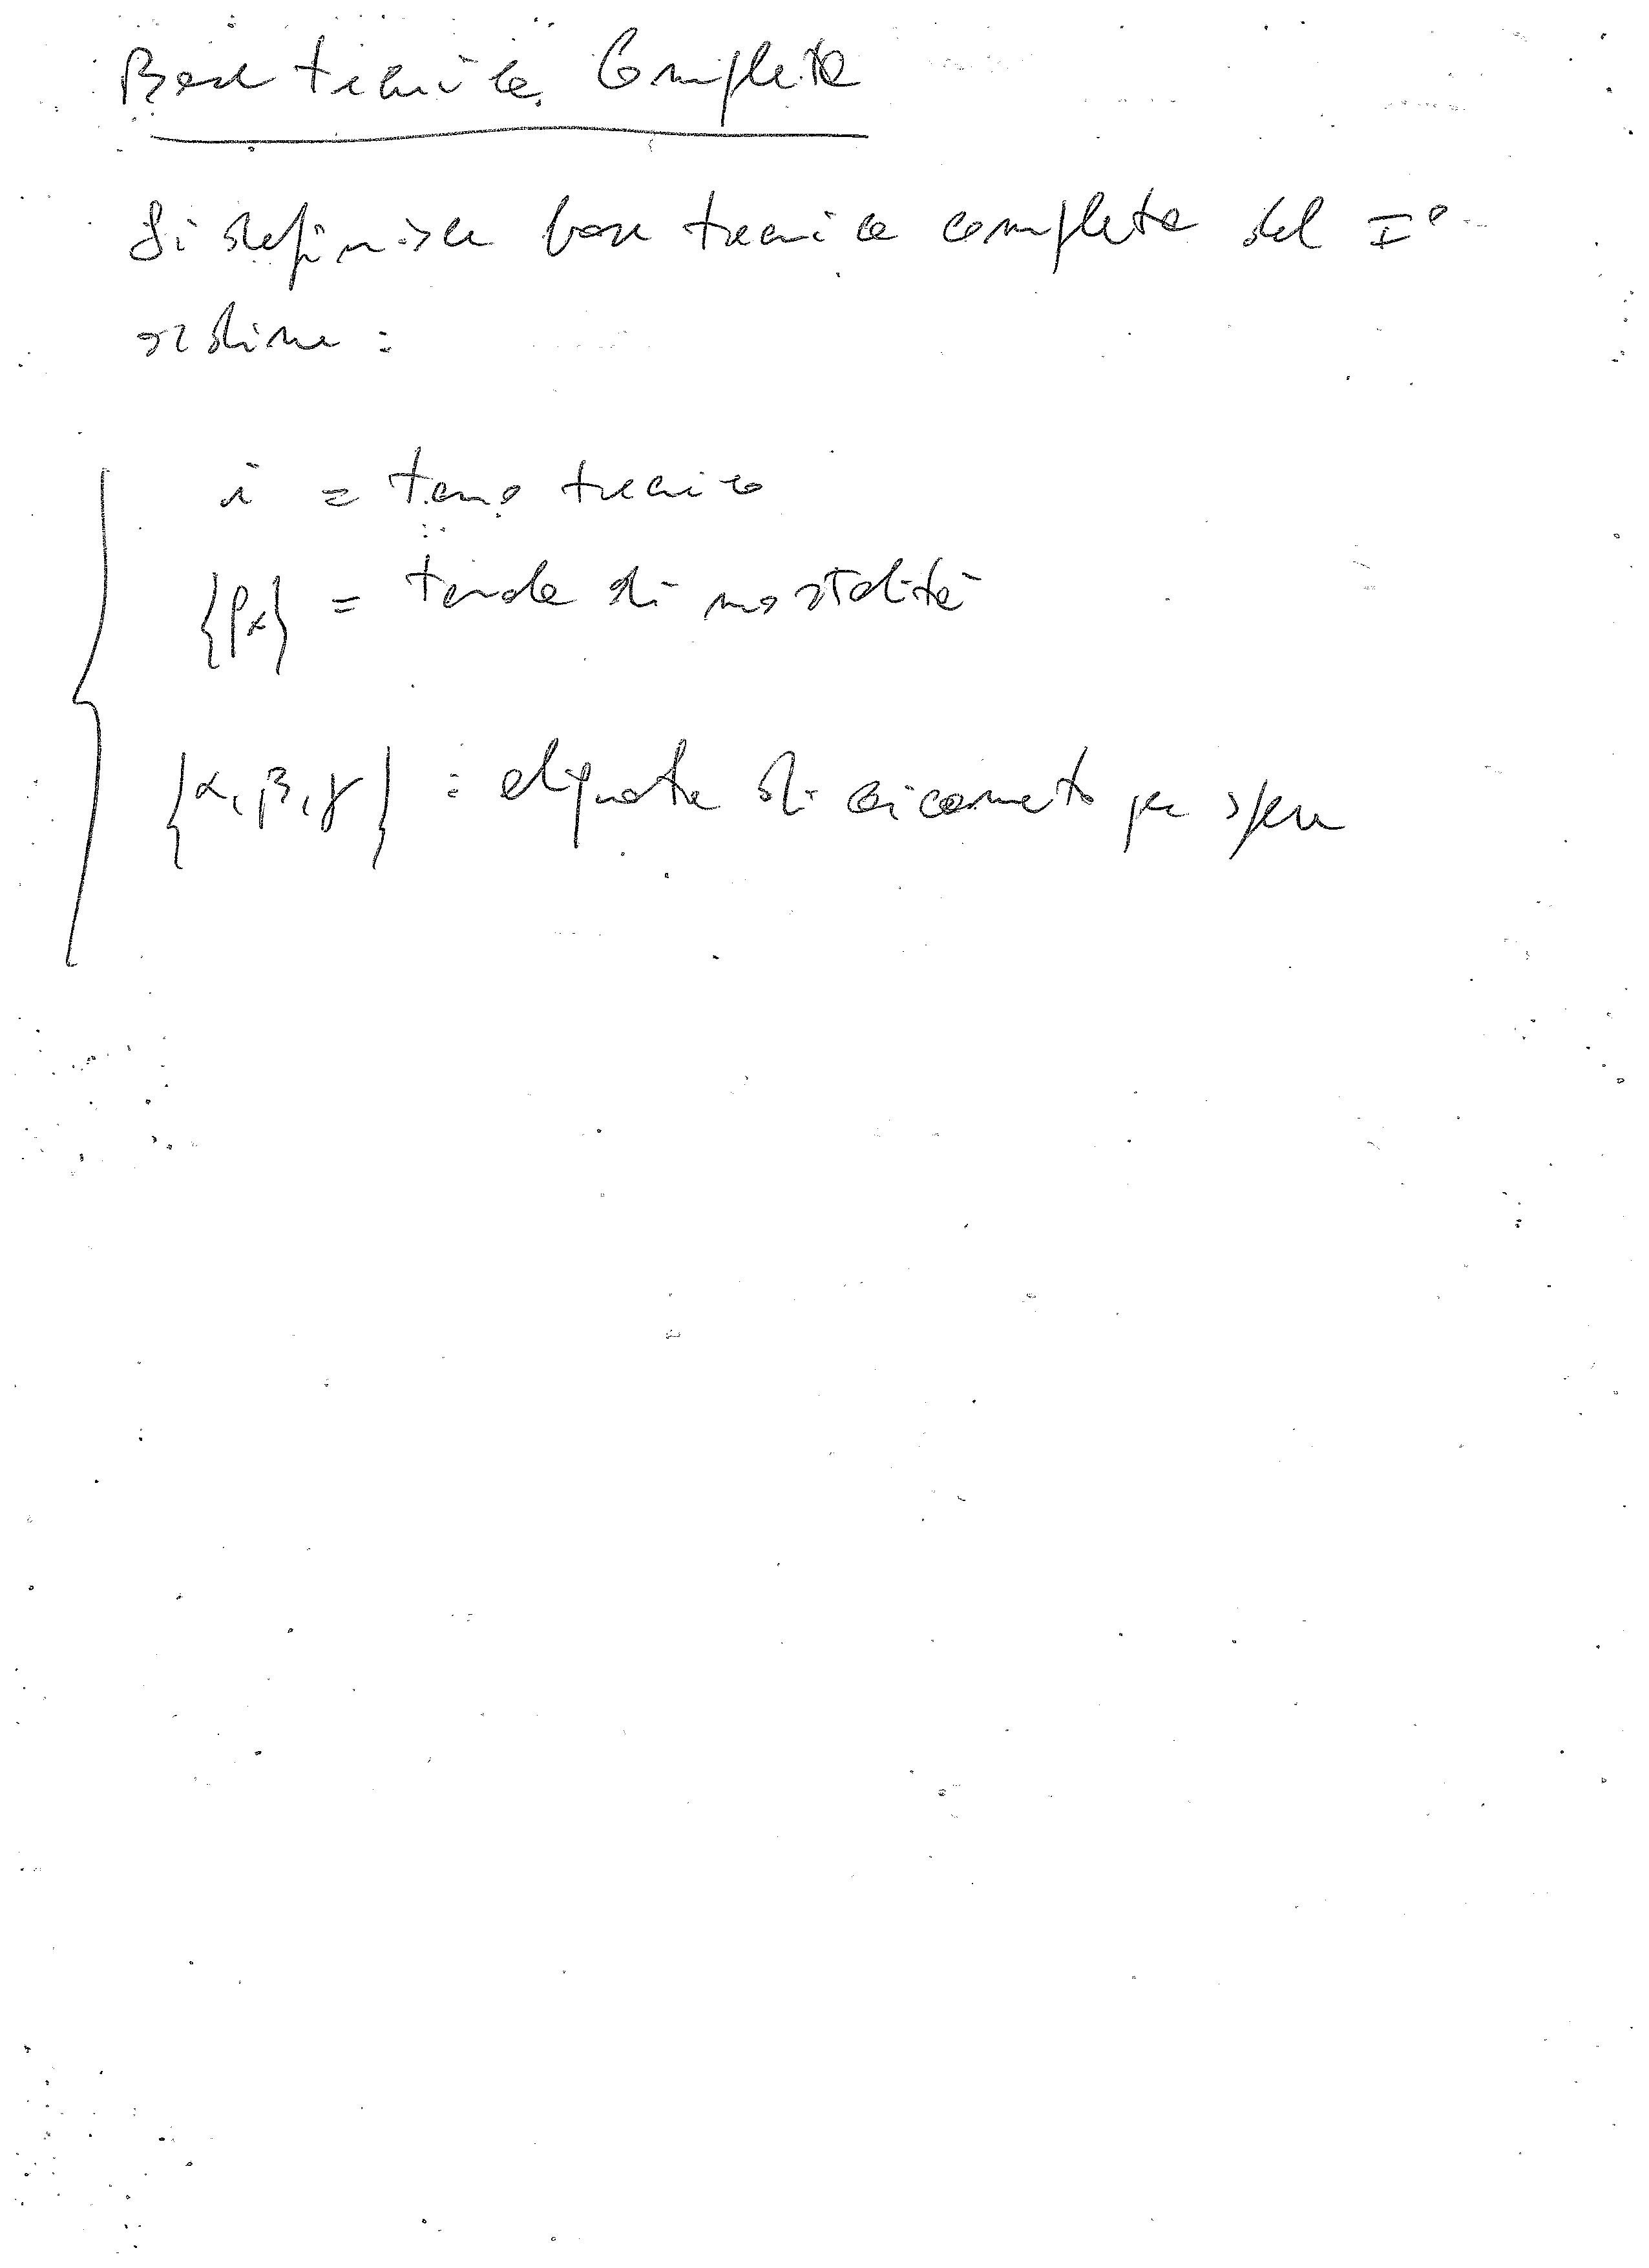 Base tecnica Completa
Si definisce base tecnica completa del I°
ordine:
i = tasso tecnico
{px} = tavola di mortalità
{α, β, γ} : aliquote di caricamento per spese